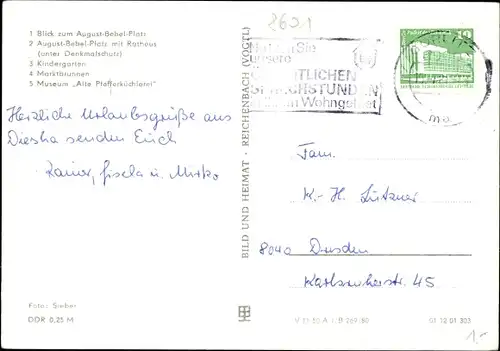 2621
1 Blick zum August-Bebel-Platz
2 August-Bebel-Platz mit Rathaus
(unter Denkmalschutz)
3 Kindergarten
4 Marktbrunnen
5 Museum „Alte Pfefferküchlerei"
Herzliche Urlaubsgrüße aus
Diesha senden Euch
Rainer, Gisela u. Mirko
Foto: Sieber
DDR 0,25 M
BILD UND HEIMAT · REICHENBACH (VOGTL)
Sie
unsere
ÖFFENTLICHEN
SPRECHSTUNDEN
im Wohngebiet
10
Fam.
K.-H. Lützner
8040 Dresden
Karlsruherstr. 45
V 11 50 A 1/B 269/80
01 12 01 303
1,-